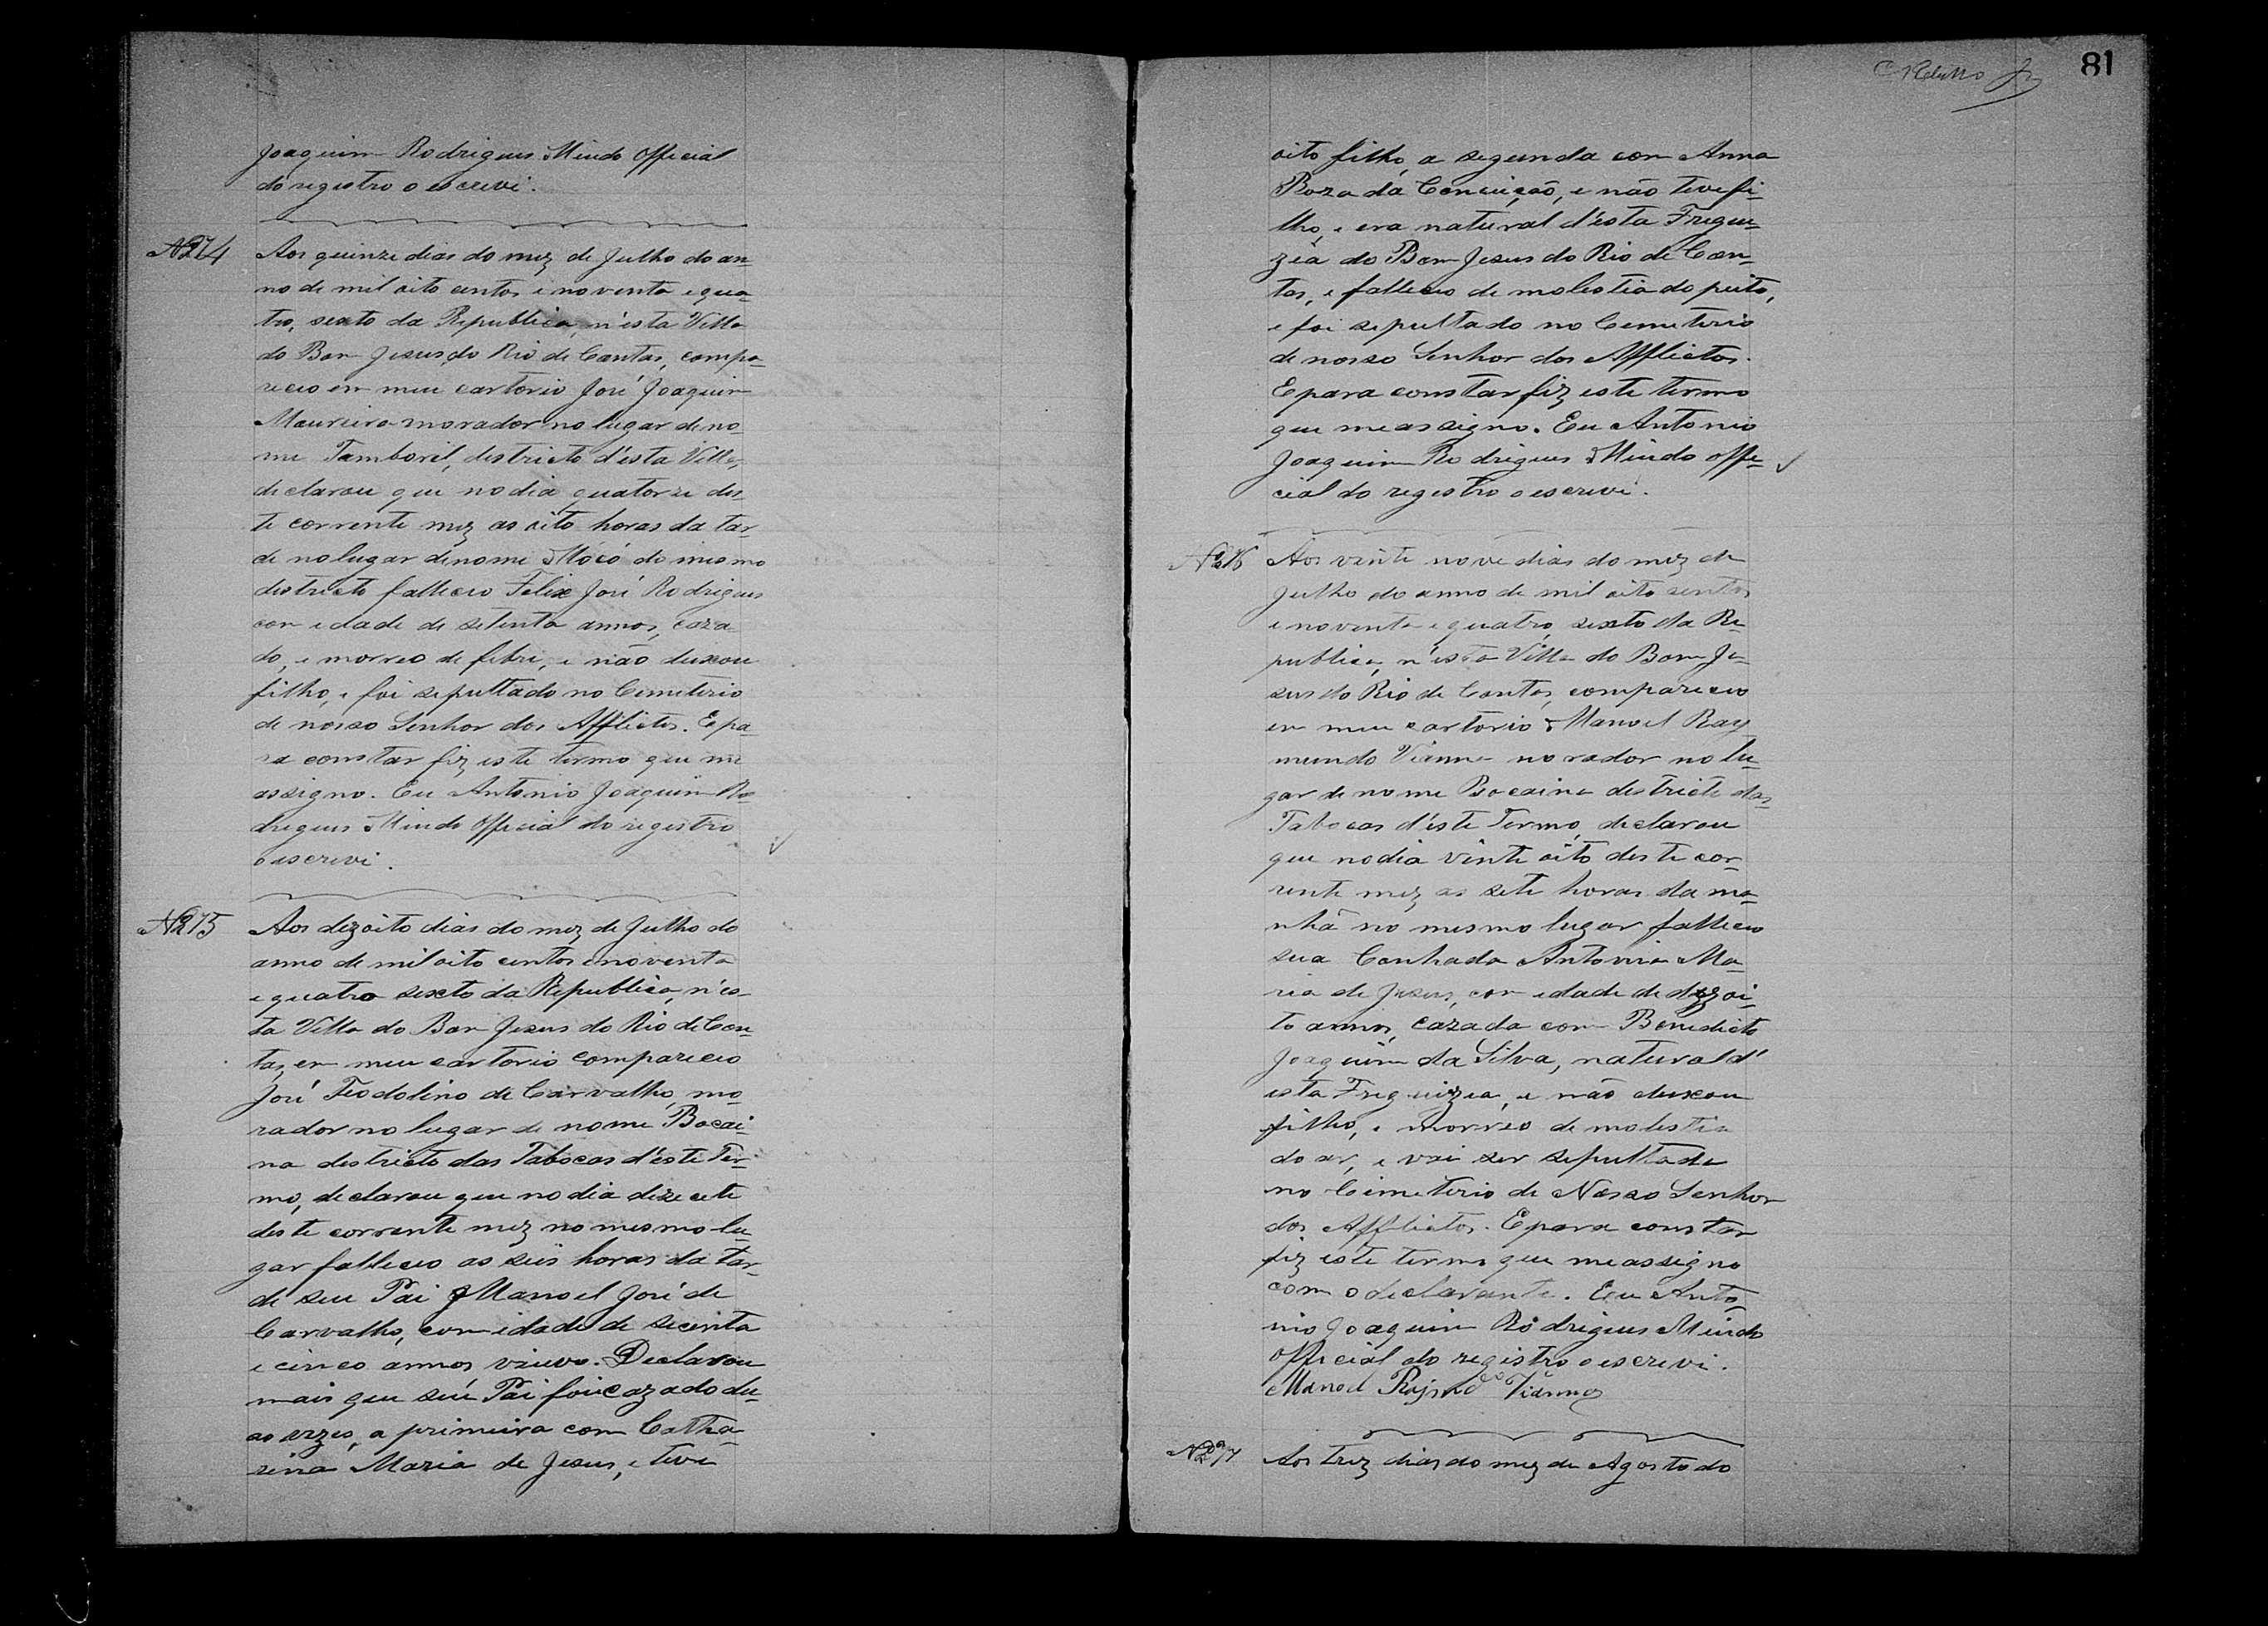 Joaquim Rodrigues Mindo official
do registro o escrevi.
Nº 274
Aos quinze dias do mez de Julho do an-
no de mil oito centos e noventa e qua-
tro, sexto da Republica, n'esta Villa
do Bom Jesus do Rio de Contas, compa-
receo em meu cartorio José Joaquim
Moureira morador no lugar de no-
me Tamboril, districto d'esta Villa,
declarou que no dia quatorze des-
te corrente mez as oito horas da tar-
de no lugar de nome Mocó do mesmo
districto falleceo Felix José Rodrigues
com edade de setenta annos, caza-
do, e morreo de febre, e não deixou
filho, e foi sepultado no Cemeterio
de nosso Senhor dos Afflictos. E pa-
ra constar fiz este termo que me
assigno. Eu Antonio Joaquim Ro-
drigues Mindo official do registro
o escrevi.
Nº 275
Aos dezoito dias do mez de Julho do
anno de mil oito centos e noventa
e quatro sexto da Republica, n'es-
ta Villa do Bom Jesus do Rio de Con-
tas, em meu cartorio compareceo
José Teodolino de Carvalho, mo-
rador no lugar de nome Bocai-
na districto das Tabocas d'este Ter-
mo, declarou que no dia dezesete
deste corrente mez no mesmo lu-
gar falleceo as seis horas da tar-
de seu Pai Manoel José de
Carvalho, com idade de secenta
e cinco annos viuvo. Declarou
mais que seu Pai foi cazado du-
as vezes, a primeira com Catha-
rina Maria de Jesus, e teve
81
oito filho, a segunda com Anna
Roza da Conceição, e não teve fi-
lho, e era natural d'esta Fregue-
zia do Bom Jesus do Rio de Con-
tas, e falleceo de molestia do peito,
e foi sepultado no Cemeterio
de nosso Senhor dos Afflictos.
E para constar fiz este termo
que me assigno. Eu Antonio
Joaquim Rodrigues Mindo offi-
cial do registro o escrevi.
Nº 276
Aos vinte nove dias do mez de
Julho do anno de mil oito sentos
e noventa e quatro, sexto da Re-
publica, n'esta Villa do Bom Je-
sus do Rio de Contas, compareceo
em meu cartorio Manoel Ray
mundo Vianna morador no lu-
gar de nome Bocaina districto das
Tabocas d'este Termo, declarou
que no dia vinte oito deste cor-
rente mez as sete horas da ma-
nhã no mesmo lugar falleceo
sua Cunhada Antonia Ma-
ria de Jesus, com edade de dezoi-
to annos, cazada com Benedicto
Joaquim da Silva, natural d'
esta Freguizia, e não deixou
filho, e morreo de molestia
do ar, e vai ser sepultada
no Cimeterio de Nosso Senhor
dos Afflictos. E para constar
fiz este termo que me assigno
com o declarante. Eu Anto-
nio Joaquim Rodrigues Mindo
official do registro o escrevi.
Manoel Rajmdo Vianna
Nº 277
Aos trez dias do mez de Agosto do